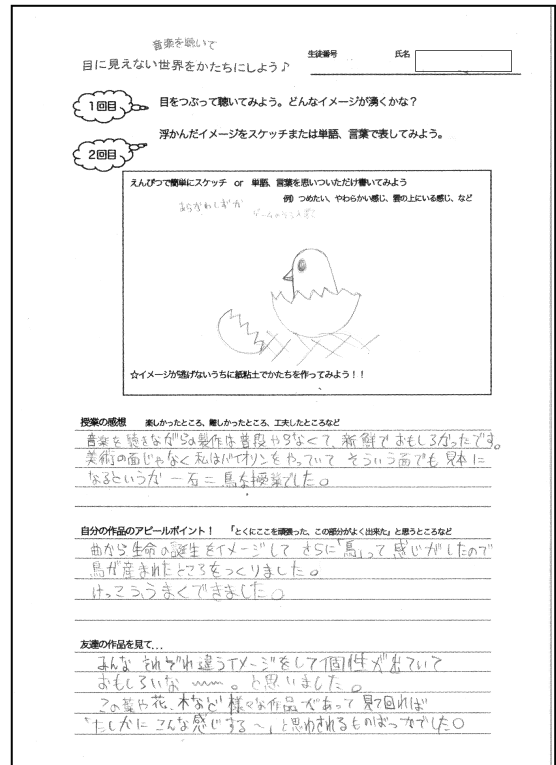 音楽を聴いて
目に見えない世界をかたちにしよう♪
生徒番号 氏名
1回目 目をつぶって聴いてみよう。どんなイメージが湧くかな？
浮かんだイメージをスケッチまたは単語、言葉で表してみよう。
2回目
えんぴつで簡単にスケッチ or 単語、言葉を思いついただけ書いてみよう
例）つめたい、やわらかい感じ、雲の上にいる感じ、など
☆イメージが逃げないうちに紙粘土でかたちを作ってみよう！！
授業の感想 楽しかったところ、難しかったところ、工夫したところなど
音楽を聴きながらの製作は普段やらなくて、新鮮でおもしろかったです。
美術の面じゃなく私はバイオリンをやっていて そういう面でも見本に
なるというか 一石二鳥な授業でした。
自分の作品のアピールポイント！ 「とくにここを頑張った、この部分がよく出来た」と思うところなど
曲から生命の誕生をイメージして さらに「鳥」って感じがしたので
鳥が産まれたところをつくりました。
けっこううまくできました。
友達の作品を見て…
みんな それぞれ違うイメージをして個性が出ていて
おもしろいな 〜〜。と思いました。
や花、木など様々な作品があって 見て回れば
「たしかに こんな感じする〜」と思わされるものばっかでした。